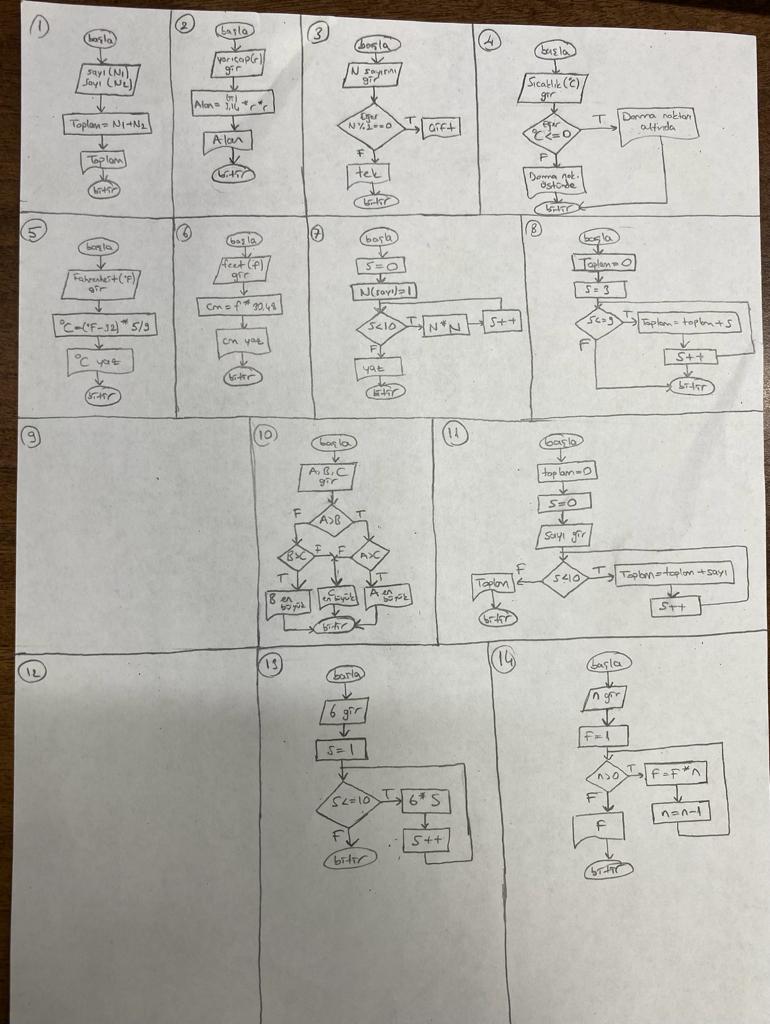 1
başla
sayı (N1)
sayı (N2)
Toplam = N1+N2
Toplam
bitir
2
başla
yarıçap(r)
gir
(π)
Alan = 3,14 * r * r
Alan
bitir
3
başla
N sayısını
gir
Eğer
N % 2 == 0
T
Çift
F
tek
bitir
4
başla
Sıcaklık (°C)
gir
Eğer
°C <= 0
T
Donma noktası
altında
F
Donma nok.
üstünde
bitir
5
başla
Fahrenheit (°F)
gir
°C = (°F-32) * 5/9
°C yaz
bitir
6
başla
feet (f)
gir
Cm = f * 30,48
cm yaz
bitir
7
başla
S=0
N(sayı)=1
S<10
T
N*N
S++
F
yaz
bitir
8
başla
Toplam=0
S=3
S<=9
T
Toplam=toplam+S
F
S++
bitir
9
10
başla
A, B, C
gir
F
A>B
T
B>C
F
F
A>C
T
T
B en
büyük
C
en büyük
A en
büyük
bitir
11
başla
toplam=0
S=0
sayı gir
F
S<10
T
Toplam=toplam+sayı
Toplam
S++
bitir
12
13
başla
6 gir
S=1
S<=10
T
6*S
F
S++
bitir
14
başla
n gir
F=1
n>0
T
F=F*n
F
n=n-1
F
bitir